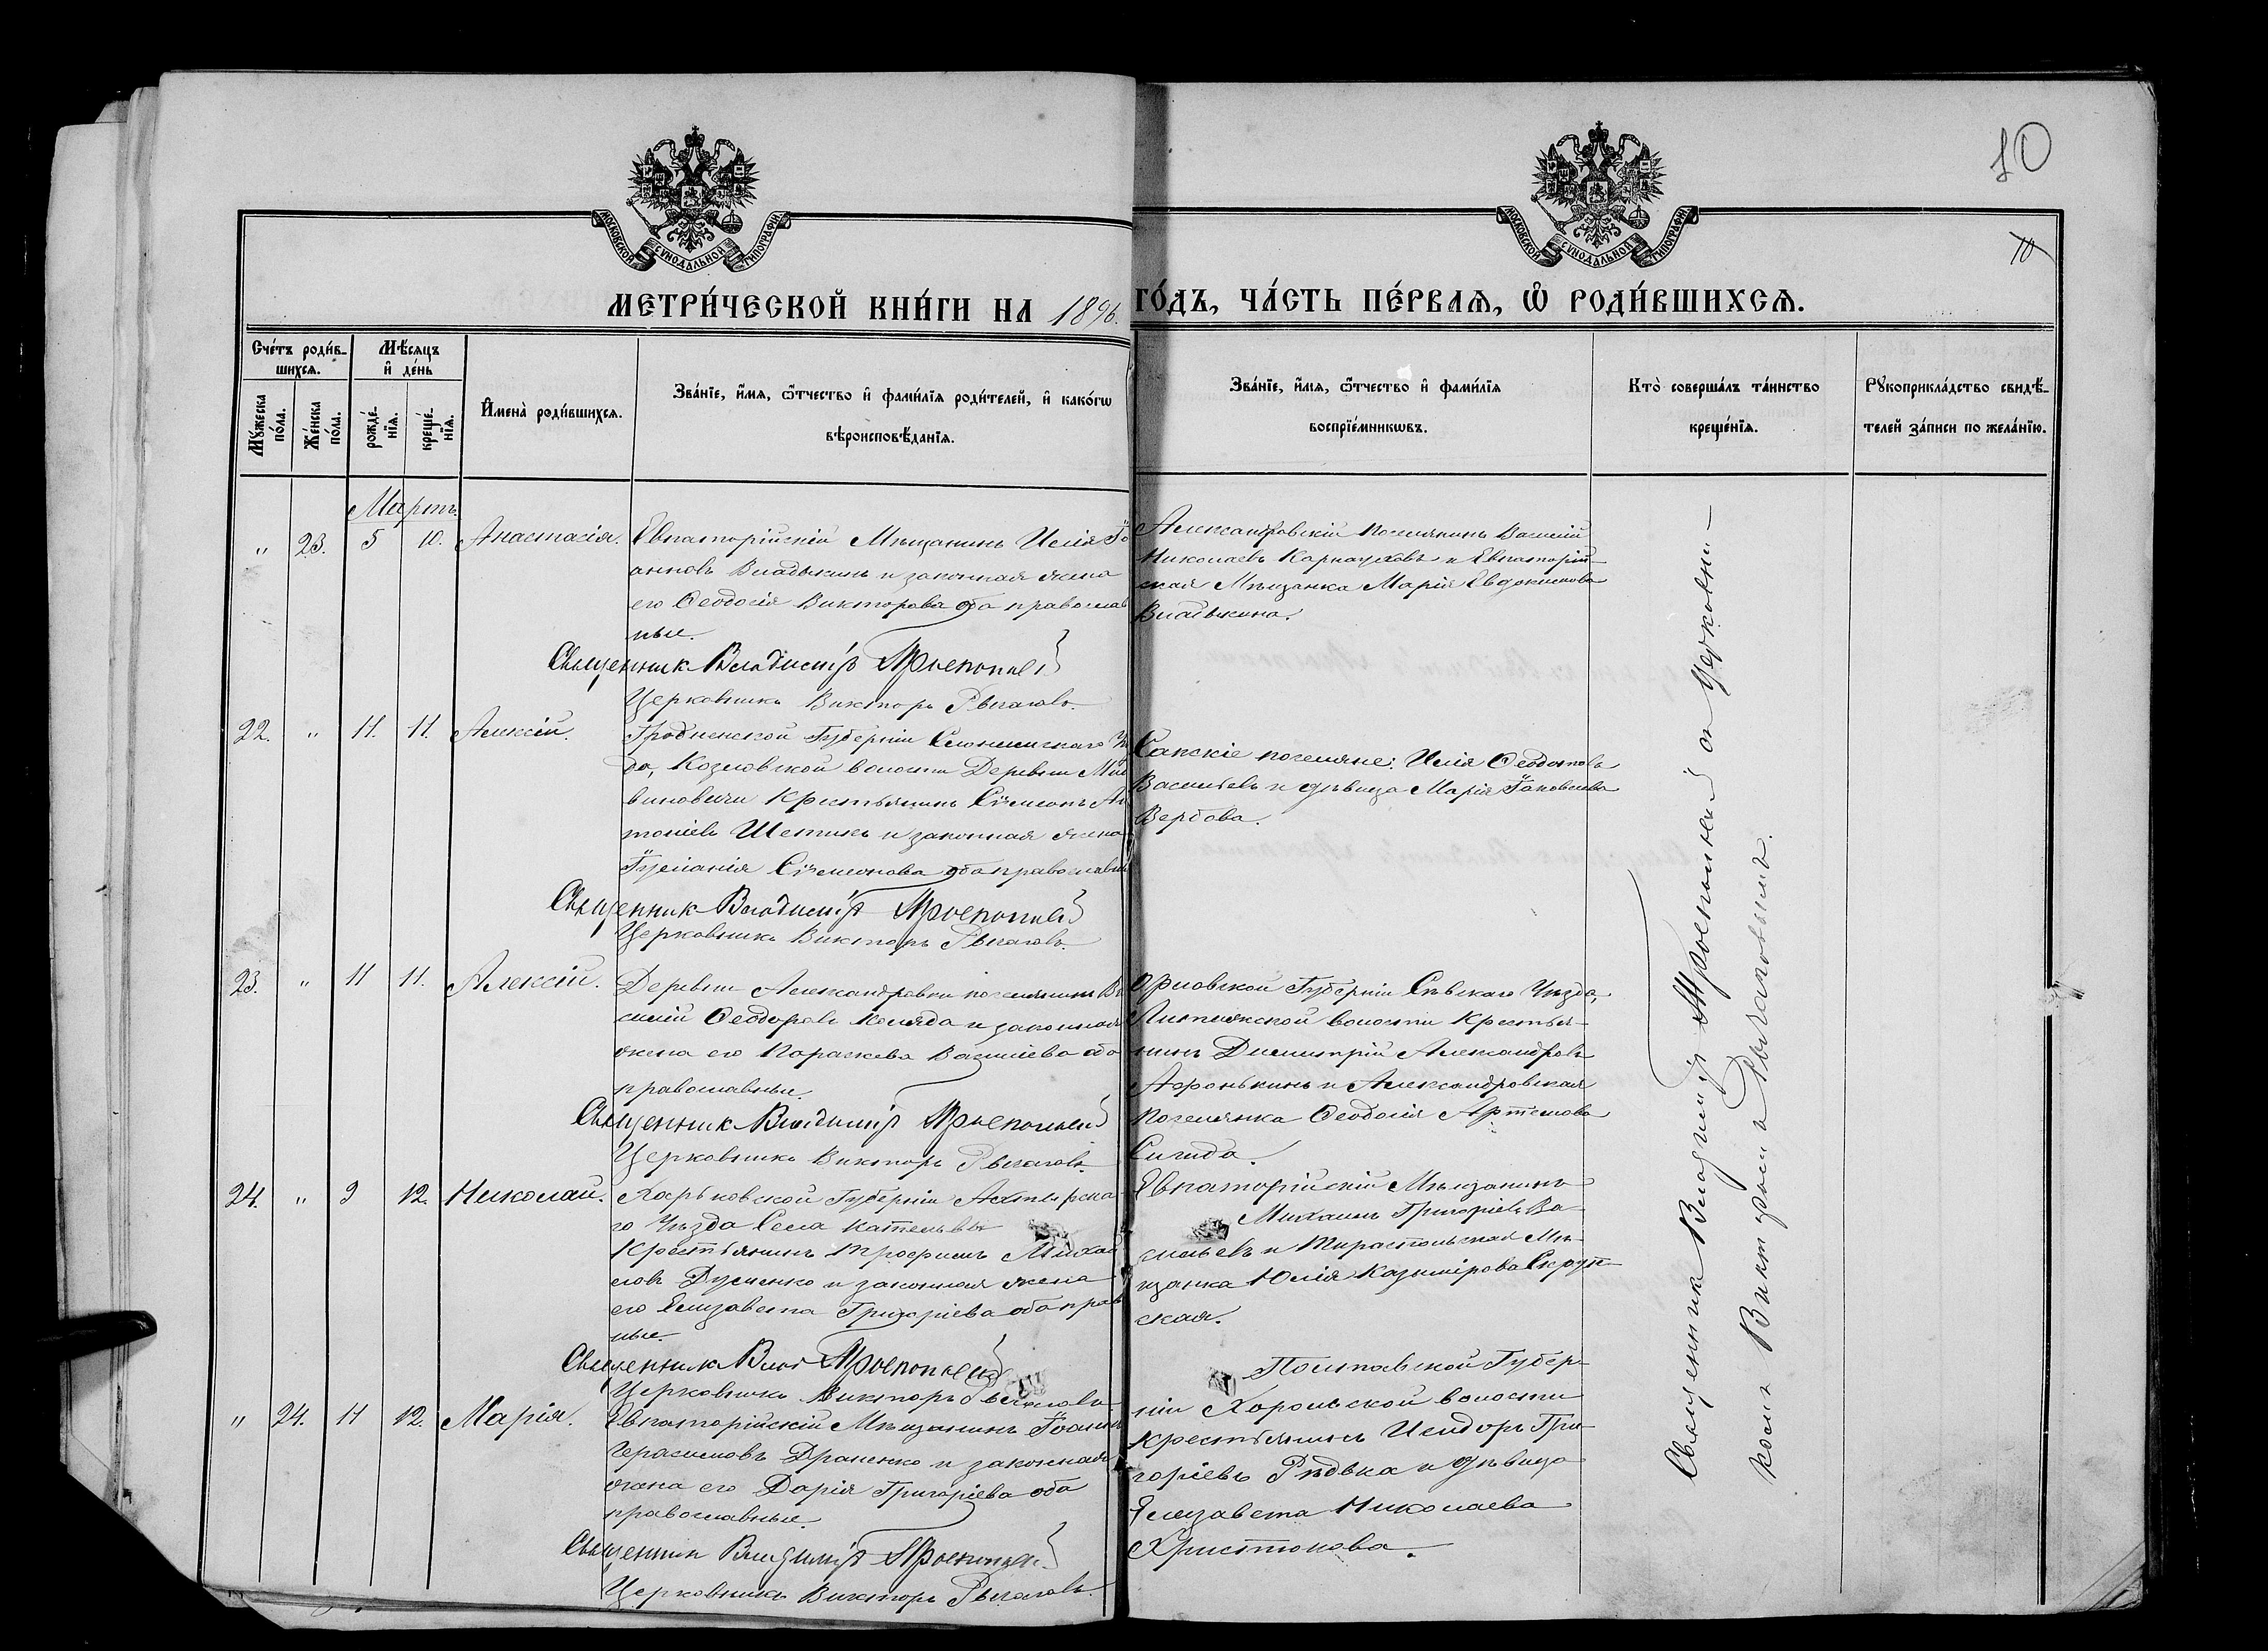 10
10
МОСКОВСКОЙ СѴНОДАЛЬНОЙ ТИПОГРАФІИ
МОСКОВСКОЙ СѴНОДАЛЬНОЙ ТИПОГРАФІИ
МЕТРИ́ЧЕСКОЙ КНИ́ГИ НА 1896. ГО́ДЪ, ЧА́СТЬ ПЕ́РВАѦ, Ѡ҆ РОДИ́ВШИХСѦ.
Сче́тъ роди́в-
шихсѧ.
Мѣ́сѧцъ
и҆ де́нь
Мꙋ́жеска
по́ла.
Же́нска
по́ла.
рожде́-
нїѧ.
креще́-
нїѧ.
И҆мена̀ роди́вшихсѧ.
Зва́нїе, и҆́мѧ, ѻ҆́тчество и҆ фами́лїѧ роди́телей, и҆ како́гѡ
вѣроисповѣ́данїѧ.
Зва́нїе, и҆́мѧ, ѻ҆́тчество и҆ фами́лїѧ
воспрїе́мникѡвъ.
Кто̀ соверша́лъ та́инство
креще́нїѧ.
Рꙋкоприкла́дство свидѣ́-
телей за́писи по жела́нїю.
Мартъ.
" 23. 5 10. Анастасія. Евпаторійскій Мѣщанинъ Илія Іо
анновъ Владыкинъ и законная жена
его Ѳеодосія Викторова оба православ
ные.
Священник Владиміръ
Церковникъ Викторъ Рычаговъ.
Александровскій поселянинъ Василій
Николаевъ Карнауховъ и Евпаторій-
ская Мѣщанка Марія Евдокимова
Владыкина.
22. " 11. 11. Алексій. Гродненской Губерніи Слонимскаго Уѣ
да, Козловской волости Деревни
Крестьянинъ Сѵмеонъ Ан
тоніевъ и законная жена
Іуліанія Сѵмеонова оба православн
Священник Владиміръ
Церковникъ Викторъ Рычаговъ.
Сакскіе поселяне: Илія
Васильевъ и дѣвица Марія Іаковлева
Вербова.
23. " 11 11. Алексій. Деревни Александровки поселянинъ Ва
силій Ѳеодоровъ Коляда и законная
жена его Параскева Василіева оба
православные.
Священник Владиміръ
Церковникъ Викторъ Рычаговъ.
Орловской Губерніи Сѣвскаго Уѣзда,
волости Крестья-
нинъ Димитрій Александровъ
Афонькинъ и Александровская
поселянка Ѳеодосія Артемова
Сигида.
24. " 9 12. Николай. Харьковской Губерніи Ахтырска
го Уѣзда Села Котельвы
Крестьянинъ Трофимъ Михай
ловъ и законная жена
его Елизавета Григоріева оба прав
ные.
Священник Влад
Церковникъ Викторъ Рычаговъ
Евпаторійскій Мѣщанинъ
Михаилъ Григоріевъ Ва-
сильевъ и Тираспольская Мѣ-
щанка Юлія Казимірова
ская.
" 24. 11 12. Марія. Евпаторійскій Мѣщанинъ Іоаннъ
Герасимовъ и законная
жена его Дарія Григоріева оба
православные.
Священник Владиміръ
Церковникъ Викторъ Рычаговъ.
Полтавской Губер-
ніи Хорольской волости
крестьянинъ Исидоръ Гри-
горіевъ Рѣдька и дѣвица
Елизавета Николаева
Христюкова.
Священник Владиміръ съ Церковни-
комъ Викторомъ Рычаговымъ.